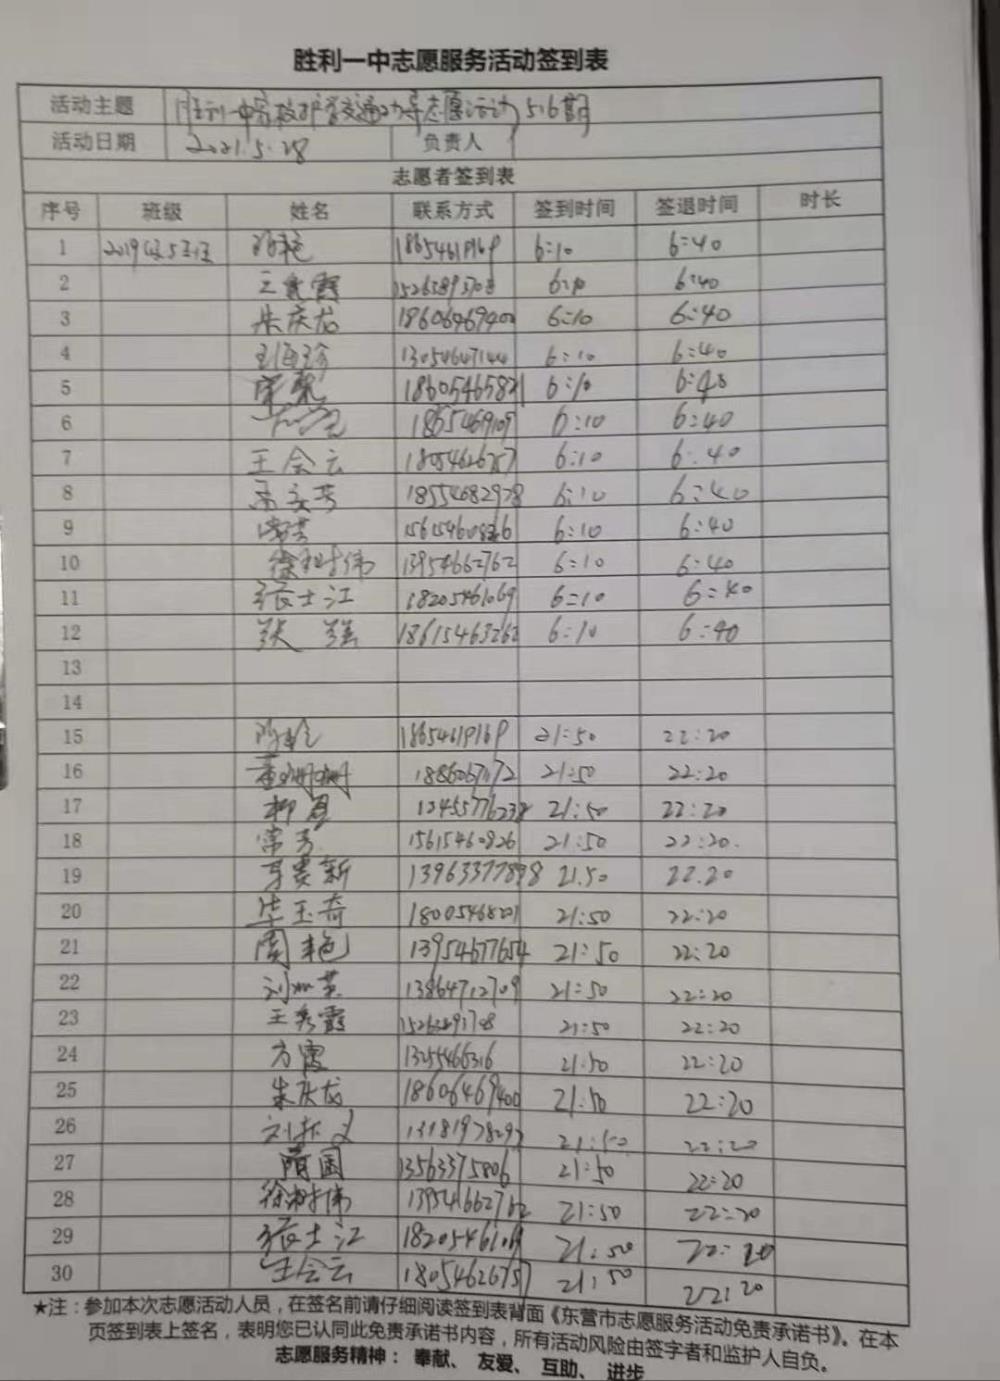 胜利一中志愿服务活动签到表
活动主题 胜利一中家校护学交通劝导志愿活动516期
活动日期 2021.5.28 负责人
志愿者签到表
序号 班级 姓名 联系方式 签到时间 签退时间 时长
1 2019级5班 18654619169 6:10 6:40
2 王秀霞 15263893708 6:10 6:40
3 朱庆龙 18606469400 6:10 6:40
4 13054647144 6:10 6:40
5 18605465821 6:10 6:40
6 6:10 6:40
7 王会云 18054626757 6:10 6:40
8 18554682978 6:10 6:40
9 常芳 15615460826 6:10 6:40
10 徐树伟 13954662762 6:10 6:40
11 张士江 18205461069 6:10 6:40
12 张强 18615463262 6:10 6:40
13
14
15 18654619169 21:50 22:20
16 董珊珊 21:50 22:20
17 柳恩 21:50 22:20
18 常芳 15615460826 21:50 22:20.
19 13963377898 21.50 22.20
20 毕玉奇 18005468201 21:50 22:20
21 周艳 13954677654 21:50 22:20
22 13864712709 21:50 22:20
23 王秀霞 21:50 22:20
24 方霞 1325466316 21:50 22:20
25 朱庆龙 18606469400 21:50 22:20
26 13181978297 21:50 22:20
27 隋国 13563375806 21:50 22:20
28 徐树伟 13954662762 21:50 22:20
29 张士江 18205461069 21:50 22:20
30 王会云 18054626757 21:50 22:20
★注：参加本次志愿活动人员，在签名前请仔细阅读签到表背面《东营市志愿服务活动免责承诺书》。在本
页签到表上签名，表明您已认同此免责承诺书内容，所有活动风险由签字者和监护人自负。
志愿服务精神：奉献、友爱、互助、进步